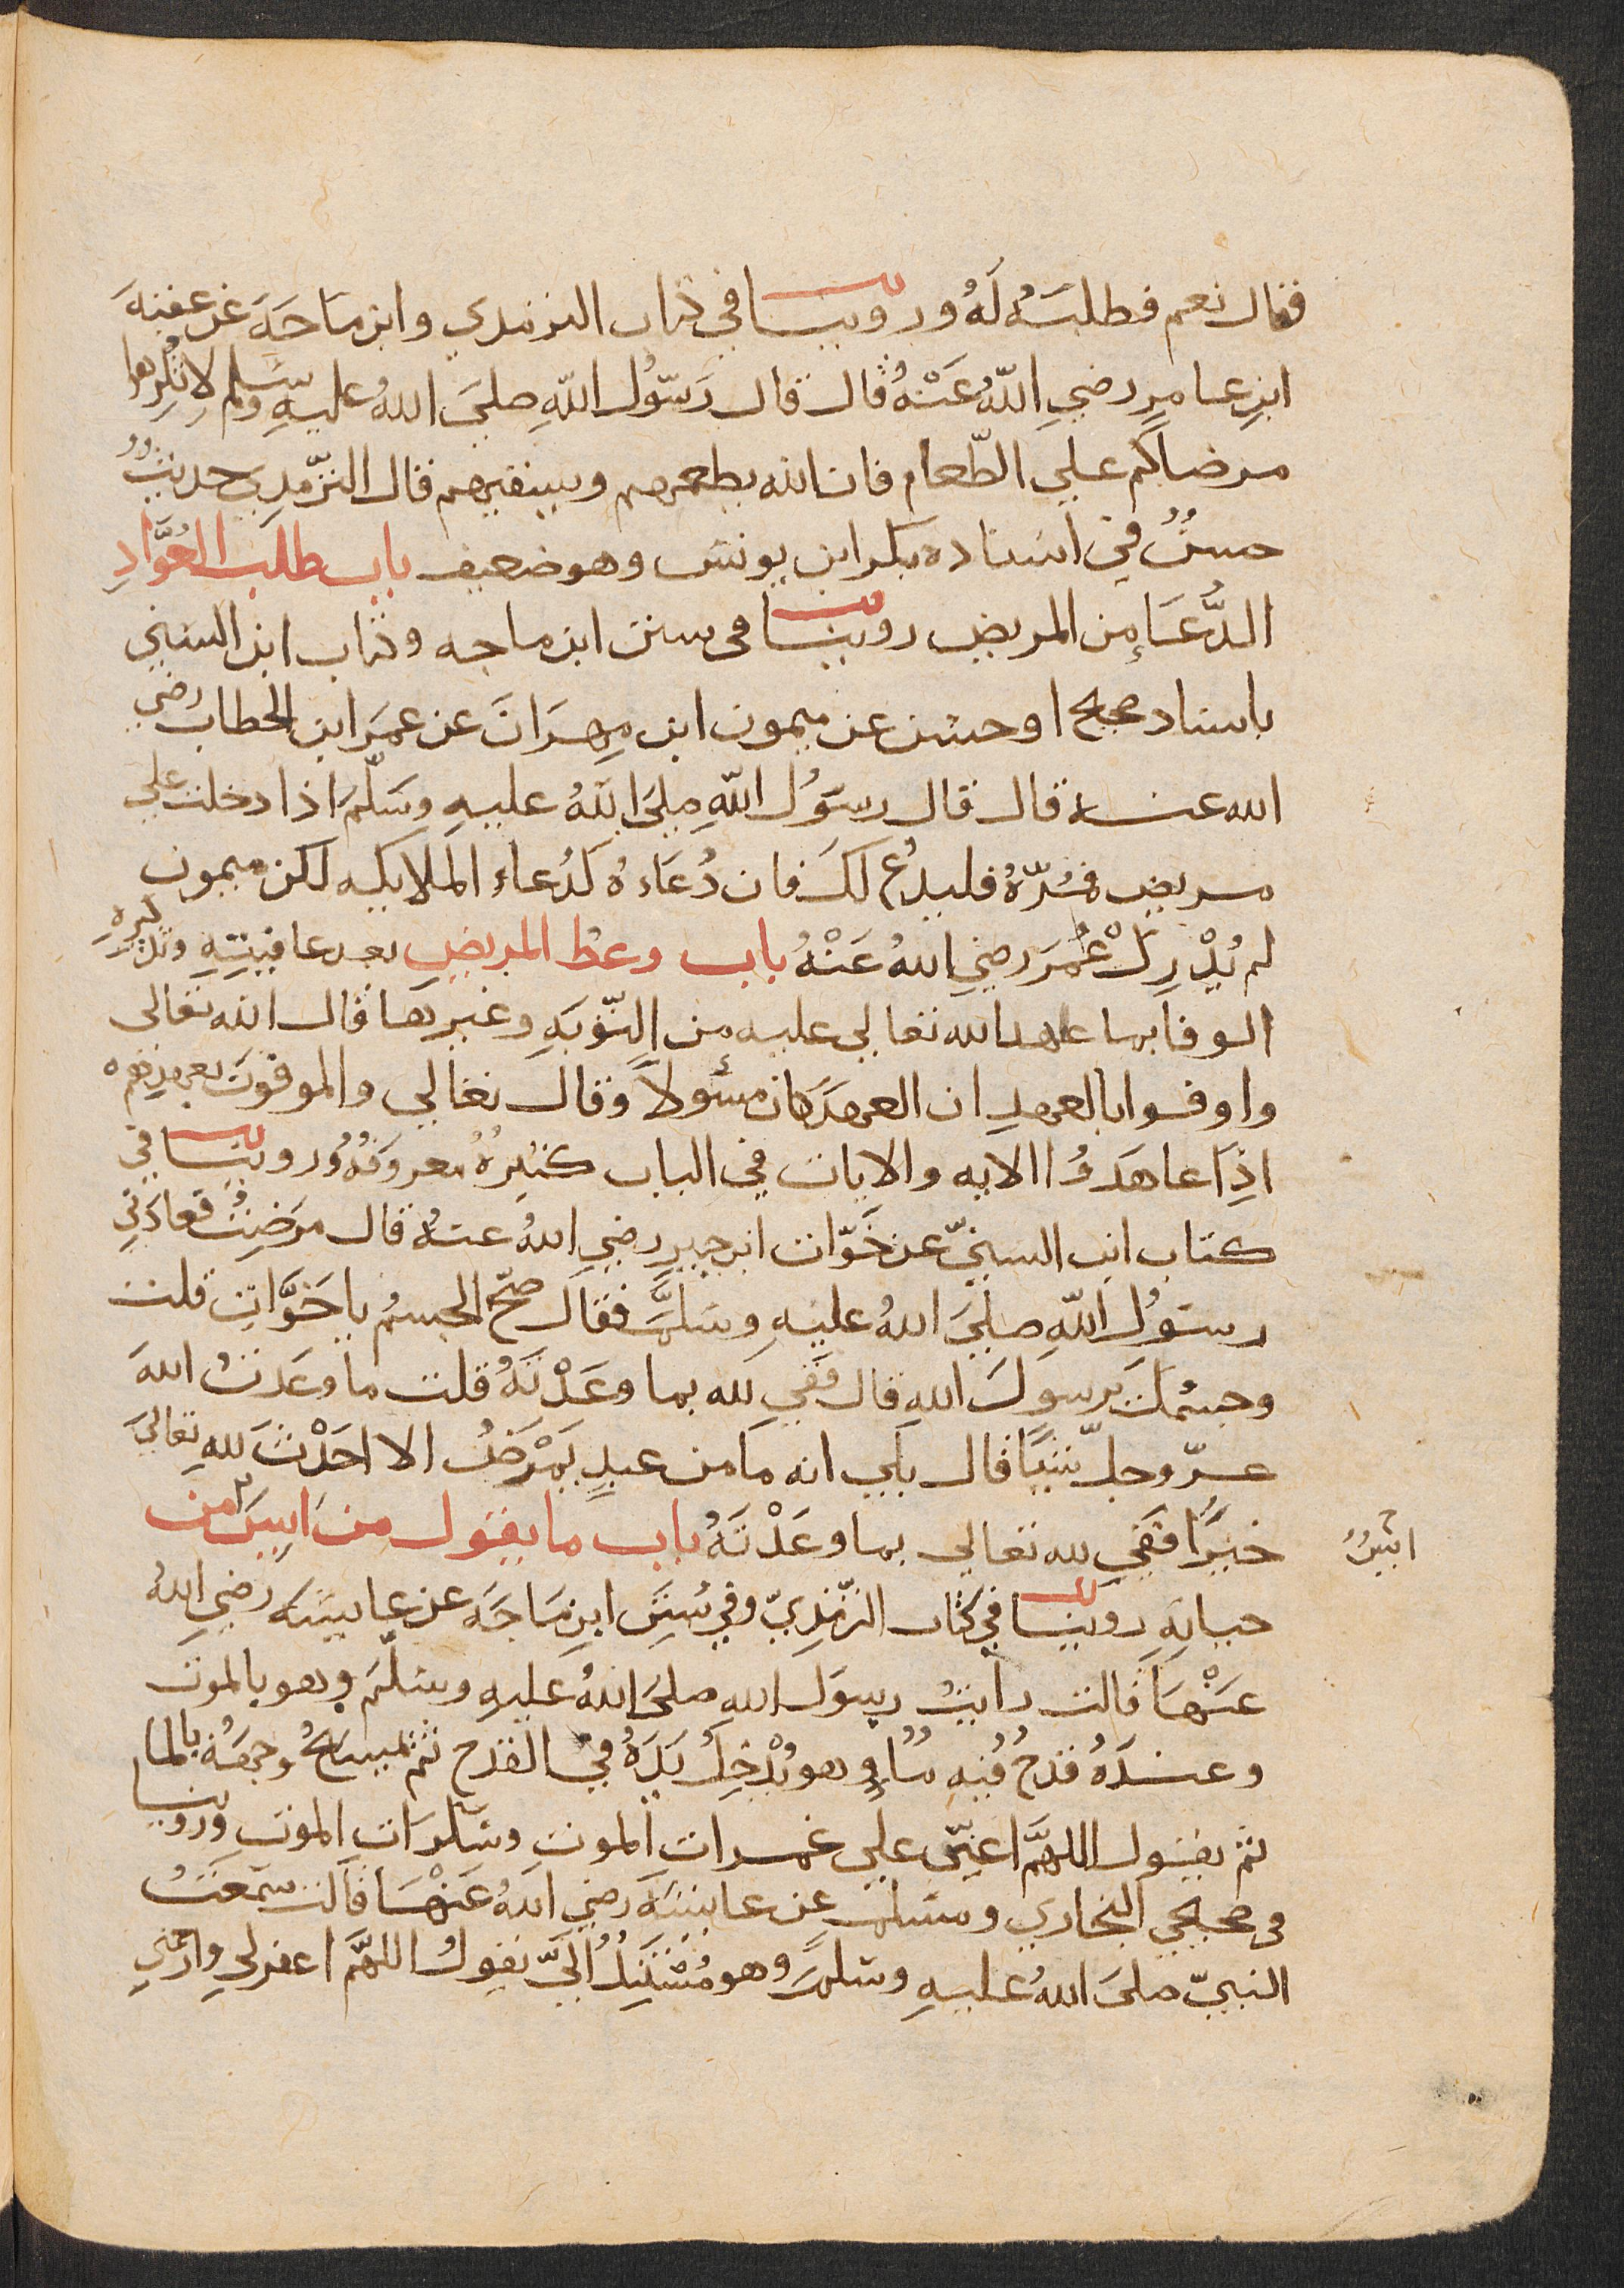 فقال نعم فطلبه له وروينا في كتاب الترمذي وابن ماجة عن عقبة
ابن عامر رضي الله عنه قال قال رسول الله صلى الله عليه وسلم لا تكرهوا
مرضاكم علي الطعام فان الله يطعمهم ويسقيهم قال الترمذي حديث
حسن في اسناده بكر ابن يونس وهو ضعيف باب طلب العواد
الدعاء من المريض روينا في سنن ابن ماجه وكتاب ابن السني
باسناد صحيح او حسن عن ميمون ابن مهران عن عمر ابن الخطاب رضي
الله عنه قال قال رسول الله صلى الله عليه وسلم اذا دخلت علي
مريض فمره فليدع لك فان دعاءه كدعاء الملايكه لكن ميمون
لم يدرك عمر رضي الله عنه باب وعظ المريض بعد عافيته وتذكيره
الوفا بما عاهد الله تعالي عليه من التوبة وغيرها قال الله تعالى
واوفوا بالعهد ان العهد كان مسئولا وقال تعالي والموفون بعهدهم
اذا عاهدوا الايه والايات في الباب كثيرة معروفة وروينا في
كتاب ابن السني عن خوات ابن جبير رضي الله عنه قال مرضت فعادني
رسول الله صلى الله عليه وسلم فقال صح الجسم يا خوات قلت
وجسمك يرسول الله قال فَفِي لله بما وعدته قلت ما وعدت الله
عز وجل شيئا قال بلي انه ما من عبد يمرض الا احدث لله تعالى
خيرا فَفِي لله تعالي بما وعدته باب ما يقول من ايس من
ايس
حياته روينا في كتاب الترمذي وفي سنن ابن ماجة عن عايشه رضي الله
عنها قالت رايت رسول الله صلى الله عليه وسلم وهو بالموت
وعنده قدح فيه ماء وهو يدخل يده في القدح ثم يمسح وجهه بالما
ثم يقول اللهم اعني علي غمرات الموت وسكرات الموت وروينا
في صحيحي البخاري ومسلم عن عايشة رضي الله عنها قالت سمعت
النبي صلى الله عليه وسلم وهو مستند الي يقول اللهم اغفر لي وارحمني